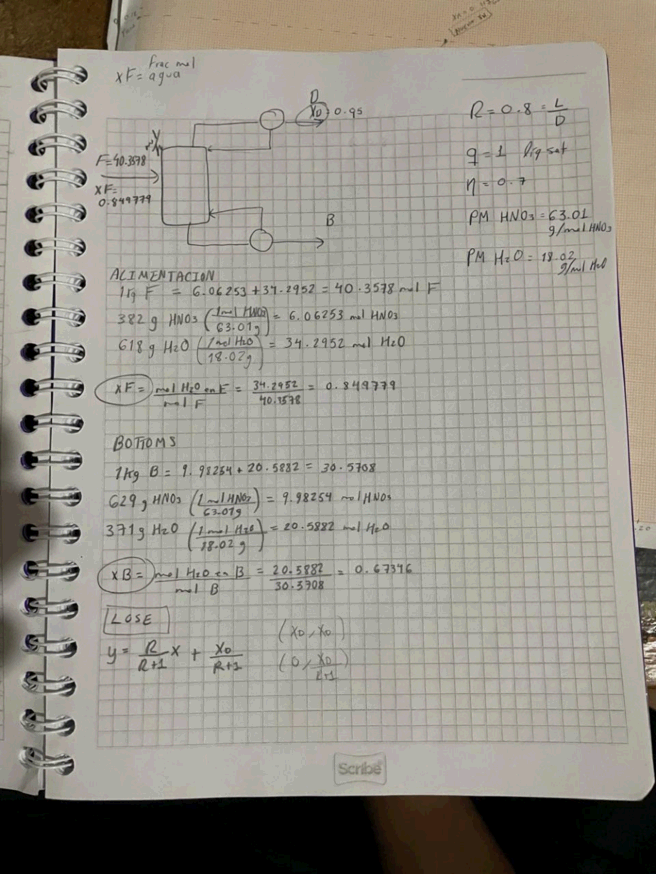 Frac mol
XF = agua
D
XD 0.95
R = 0.8 = L/D
F=40.3578
q = 1 liq sat
XF=
0.849779
η = 0.7
B
PM HNO3 = 63.01
g/mol HNO3
PM H2O = 18.02
g/mol H2O
ALIMENTACION
1 kg F = 6.06253 + 34.2952 = 40.3578 mol F
382 g HNO3 (1 mol HNO3 / 63.01 g) = 6.06253 mol HNO3
618 g H2O (1 mol H2O / 18.02 g) = 34.2952 mol H2O
XF = mol H2O en F / mol F = 34.2952 / 40.3578 = 0.849779
BOTTOMS
1 kg B = 9.98254 + 20.5882 = 30.5708
629 g HNO3 (1 mol HNO3 / 63.01 g) = 9.98254 mol HNO3
371 g H2O (1 mol H2O / 18.02 g) = 20.5882 mol H2O
XB = mol H2O en B / mol B = 20.5882 / 30.5708 = 0.67346
LOSE
y = R/R+1 x + XD/R+1
(XD, XD)
(0, XD/R+1)
Scribe